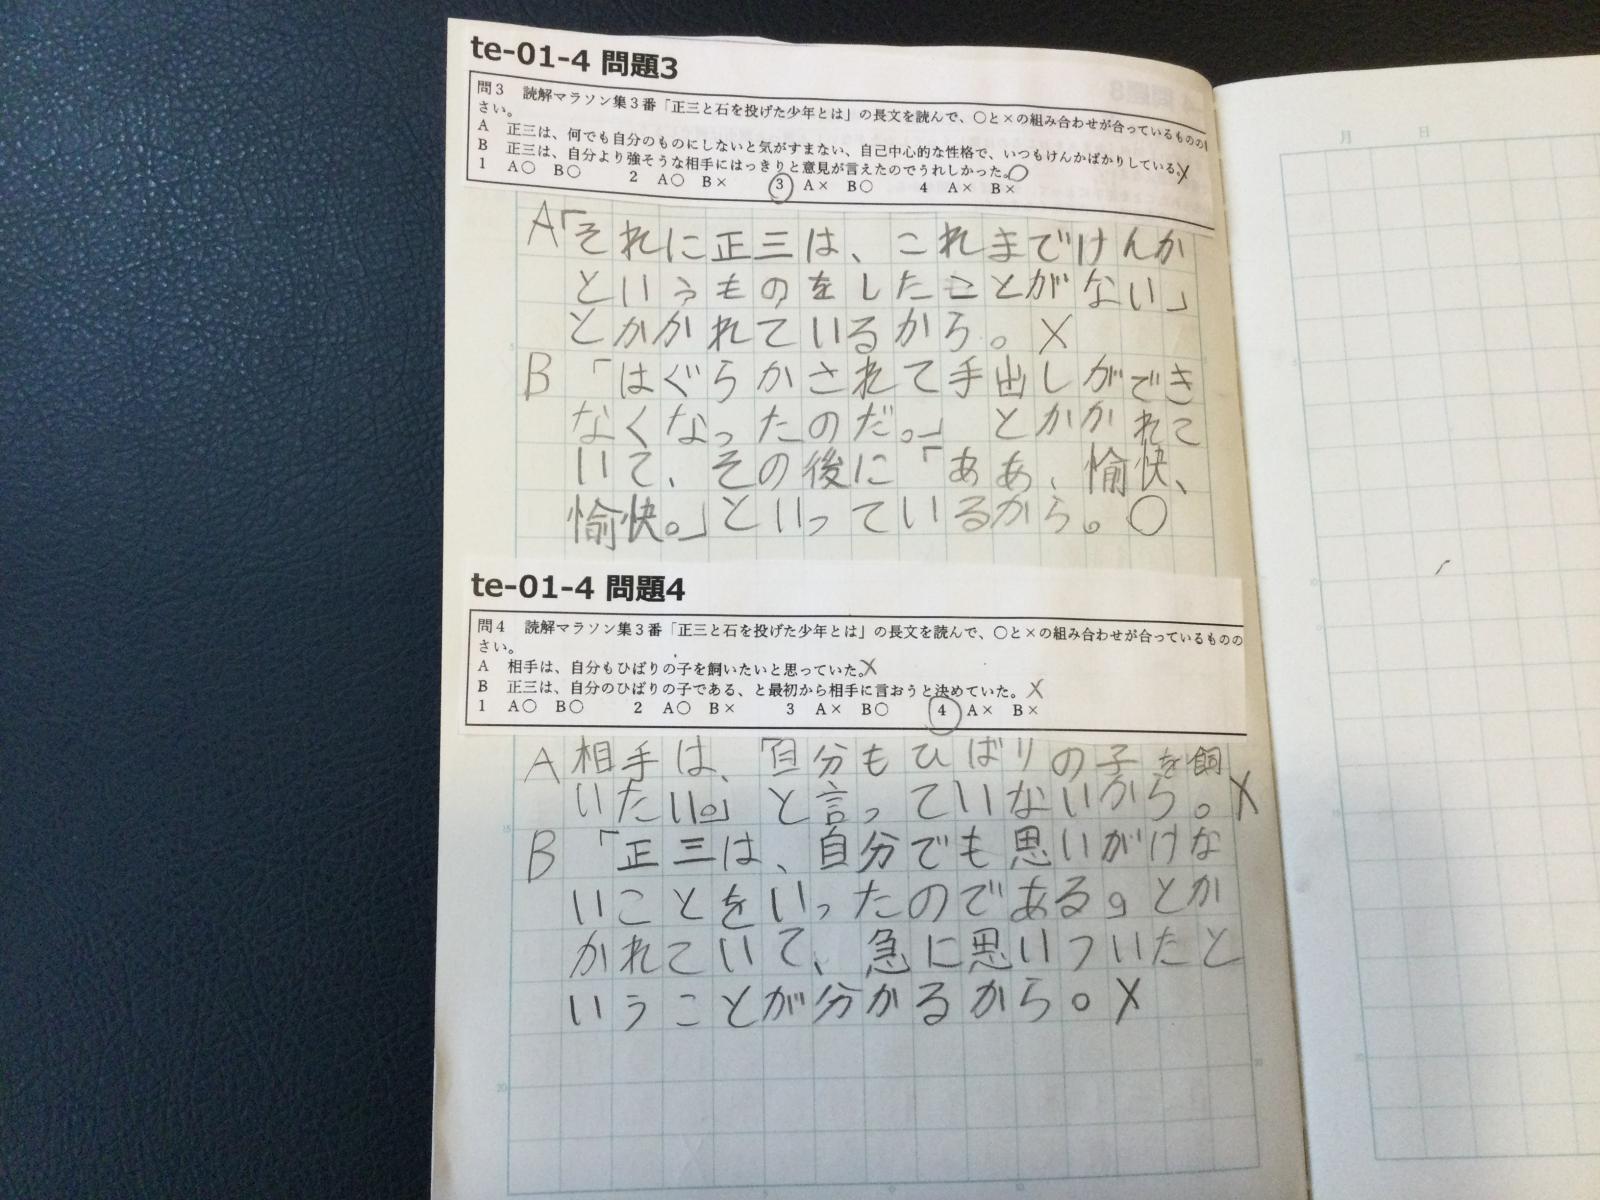 te-01-4 問題3
問3 読解マラソン集3番「正三と石を投げた少年とは」の長文を読んで、○と×の組み合わせが合っているものの
さい。
A 正三は、何でも自分のものにしないと気がすまない、自己中心的な性格で、いつもけんかばかりしている。×
B 正三は、自分より強そうな相手にはっきりと意見が言えたのでうれしかった。○
1 A○ B○ 2 A○ B× 3 A× B○ 4 A× B×
A「それに正三は、これまでけんか
というものをしたことがない」
とかかれているから。×
B 「はぐらかされて手出しができ
なくなったのだ。」とかかれて
いて、その後に「ああ、愉快、
愉快。」といっているから。○
te-01-4 問題4
問4 読解マラソン集3番「正三と石を投げた少年とは」の長文を読んで、○と×の組み合わせが合っているものの
さい。
A 相手は、自分もひばりの子を飼いたいと思っていた。×
B 正三は、自分のひばりの子である、と最初から相手に言おうと決めていた。×
1 A○ B○ 2 A○ B× 3 A× B○ 4 A× B×
A 相手は、「自分もひばりの子を飼
いたい。」と言っていないから。×
B 「正三は、自分でも思いがけな
いことをいったのである。とか
かれていて、急に思いついたと
いうことが分かるから。×
月 日